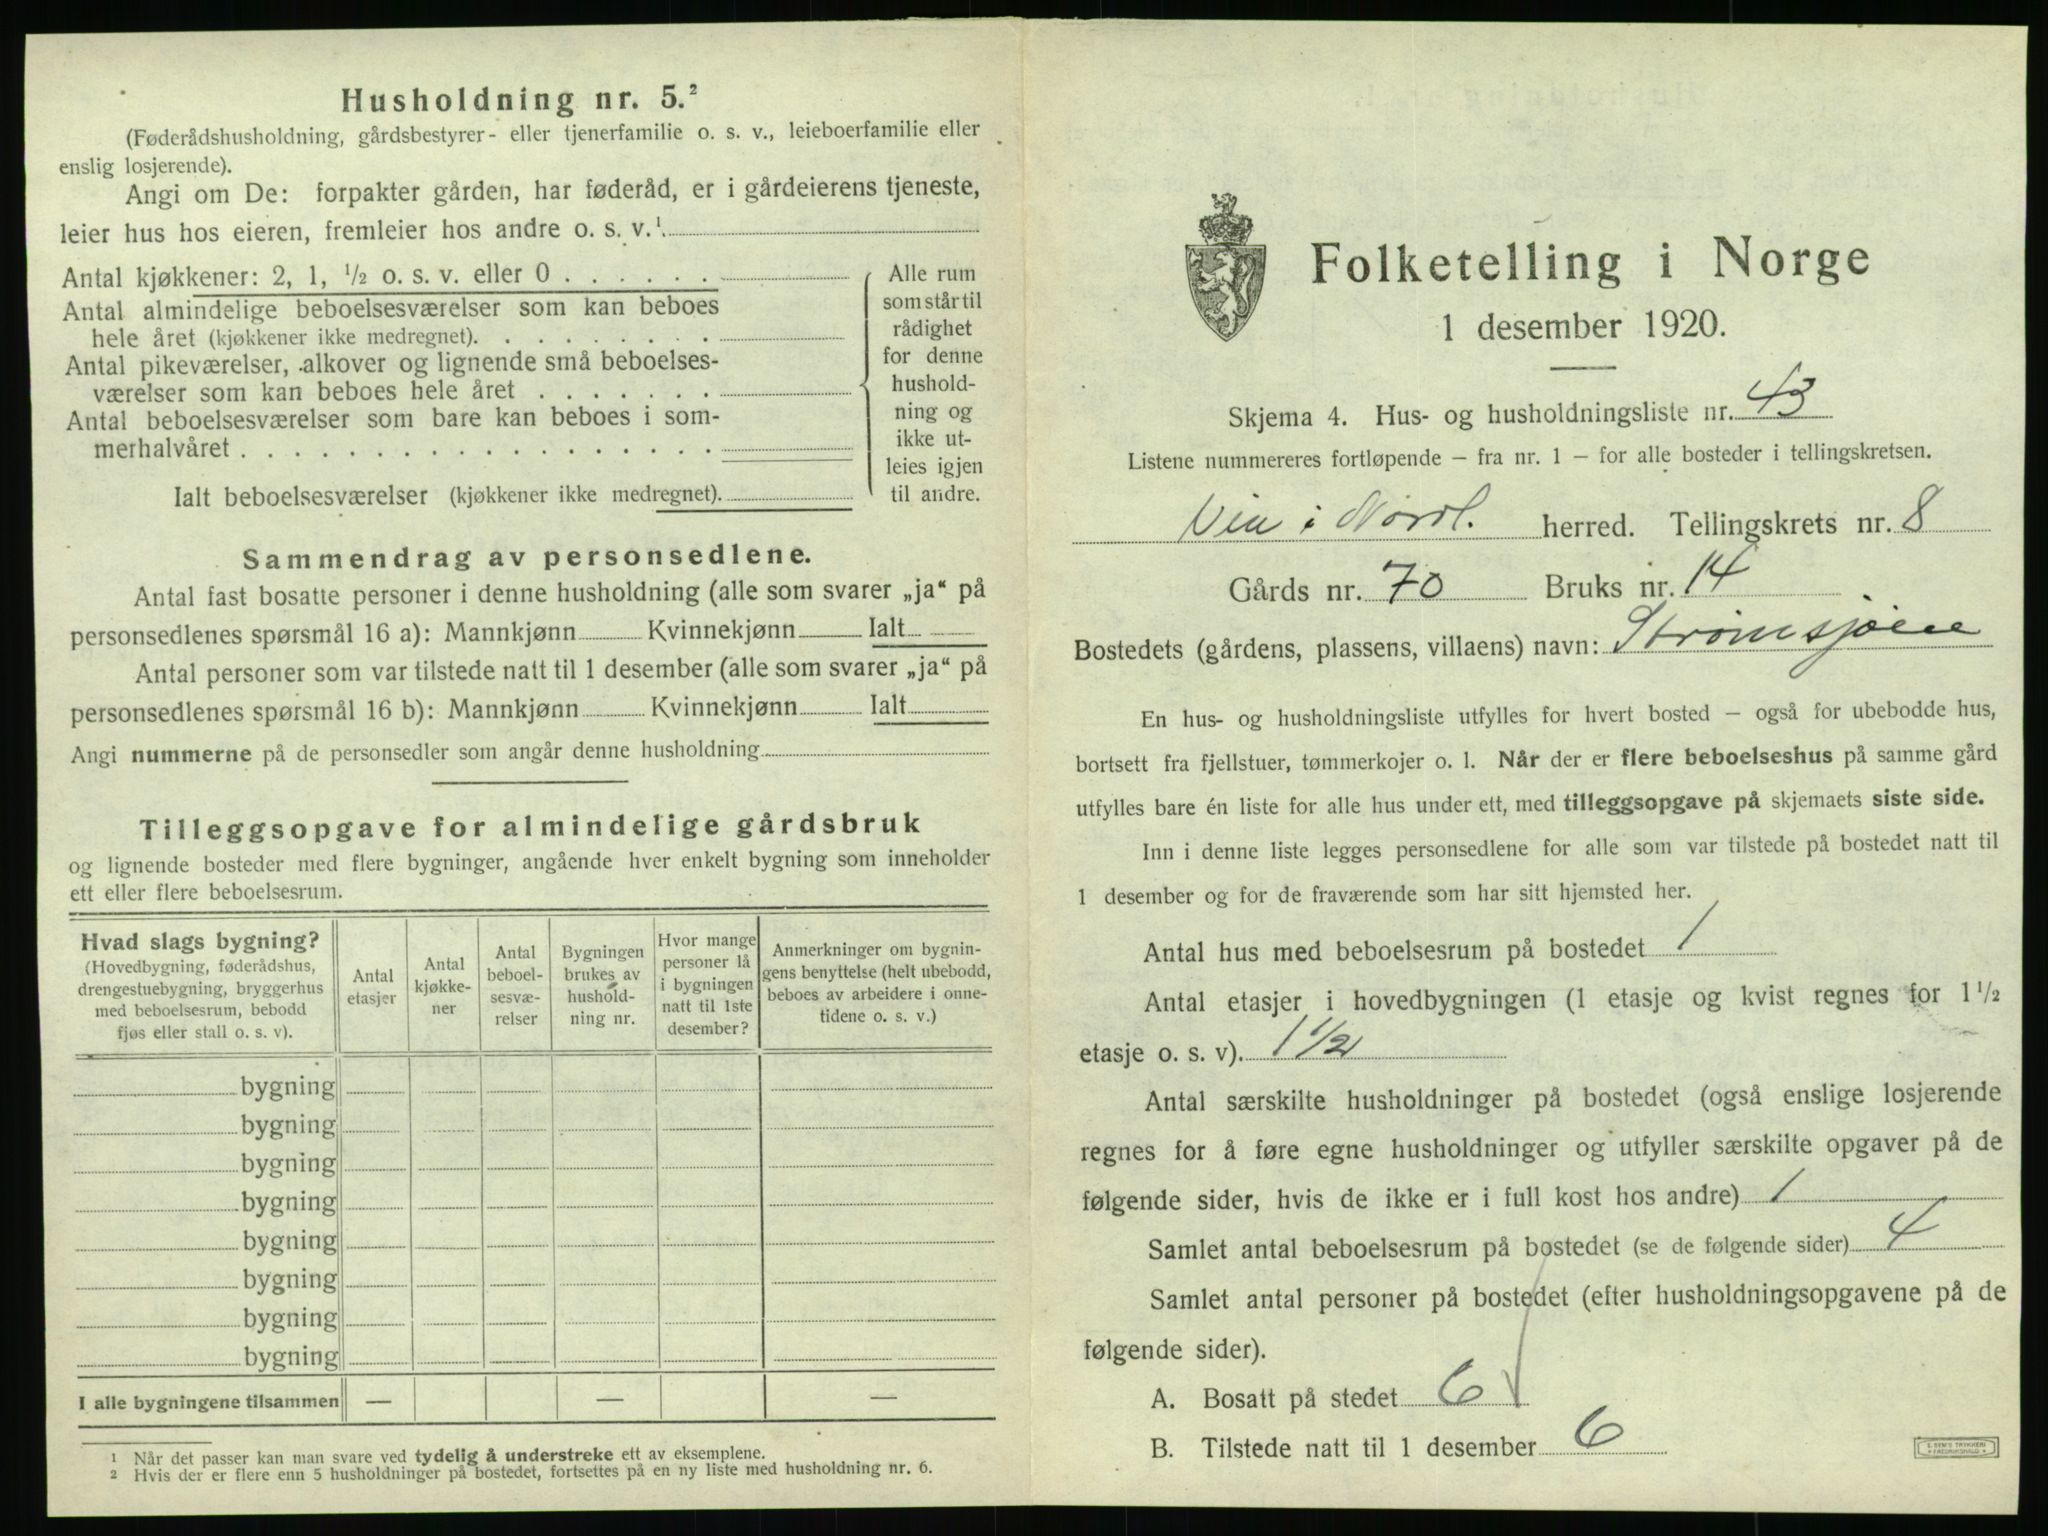 Husholdning nr. 5.²
(Føderådshusholdning, gårdsbestyrer- eller tjenerfamilie o. s. v., leieboerfamilie eller
enslig losjerende).
Angi om De: forpakter gården, har føderåd, er i gårdeierens tjeneste,
leier hus hos eieren, fremleier hos andre o. s. v.¹
Antal kjøkkener: 2, 1, ½ o. s. v. eller 0 . . . . . .
Antal almindelige beboelsesværelser som kan beboes
hele året (kjøkkener ikke medregnet). . . . . . . . .
Antal pikeværelser, alkover og lignende små beboelses-
værelser som kan beboes hele året . . . . . . .
Antal beboelsesværelser som bare kan beboes i som-
merhalvåret . . . . . . . . . . . . . . . . . .
Ialt beboelsesværelser (kjøkkener ikke medregnet).
Alle rum
som står til
rådighet
for denne
hushold-
ning og
ikke ut-
leies igjen
til andre.
Sammendrag av personsedlene.
Antal fast bosatte personer i denne husholdning (alle som svarer „ja“ på
personsedlenes spørsmål 16 a): Mannkjønn Kvinnekjønn Ialt
Antal personer som var tilstede natt til 1 desember (alle som svarer „ja“ på
personsedlenes spørsmål 16 b): Mannkjønn Kvinnekjønn Ialt
Angi nummerne på de personsedler som angår denne husholdning
Tilleggsopgave for almindelige gårdsbruk
og lignende bosteder med flere bygninger, angående hver enkelt bygning som inneholder
ett eller flere beboelsesrum.
Hvad slags bygning?
(Hovedbygning, føderådshus,
drengestuebygning, bryggerhus
med beboelsesrum, bebodd
fjøs eller stall o. s. v).
Antal
etasjer
Antal
kjøkke-
ner
Antal
beboel-
sesvæ-
relser
Bygningen
brukes av
hushold-
ning nr.
Hvor mange
personer lå
i bygningen
natt til 1ste
desember?
Anmerkninger om bygnin-
gens benyttelse (helt ubebodd,
beboes av arbeidere i onne-
tidene o. s. v.)
bygning
bygning
bygning
bygning
bygning
bygning
bygning
bygning
I alle bygningene tilsammen — — —
¹ Når det passer kan man svare ved tydelig å understreke ett av eksemplene.
² Hvis der er flere enn 5 husholdninger på bostedet, fortsettes på en ny liste med husholdning nr. 6.
Folketelling i Norge
1 desember 1920.
Skjema 4. Hus- og husholdningsliste nr. 43
Listene nummereres fortløpende – fra nr. 1 – for alle bosteder i tellingskretsen.
i Nordl. herred. Tellingskrets nr. 8
Gårds nr. 70 Bruks nr. 14
Bostedets (gårdens, plassens, villaens) navn: Strømsjøen
En hus- og husholdningsliste utfylles for hvert bosted – også for ubebodde hus,
bortsett fra fjellstuer, tømmerkojer o. l. Når der er flere beboelseshus på samme gård
utfylles bare én liste for alle hus under ett, med tilleggsopgave på skjemaets siste side.
Inn i denne liste legges personsedlene for alle som var tilstede på bostedet natt til
1 desember og for de fraværende som har sitt hjemsted her.
Antal hus med beboelsesrum på bostedet 1
Antal etasjer i hovedbygningen (1 etasje og kvist regnes for 1½
etasje o. s. v). 1½
Antal særskilte husholdninger på bostedet (også enslige losjerende
regnes for å føre egne husholdninger og utfyller særskilte opgaver på de
følgende sider, hvis de ikke er i full kost hos andre) 1
Samlet antal beboelsesrum på bostedet (se de følgende sider) 4
Samlet antal personer på bostedet (efter husholdningsopgavene på de
følgende sider).
A. Bosatt på stedet 6
B. Tilstede natt til 1 desember 6